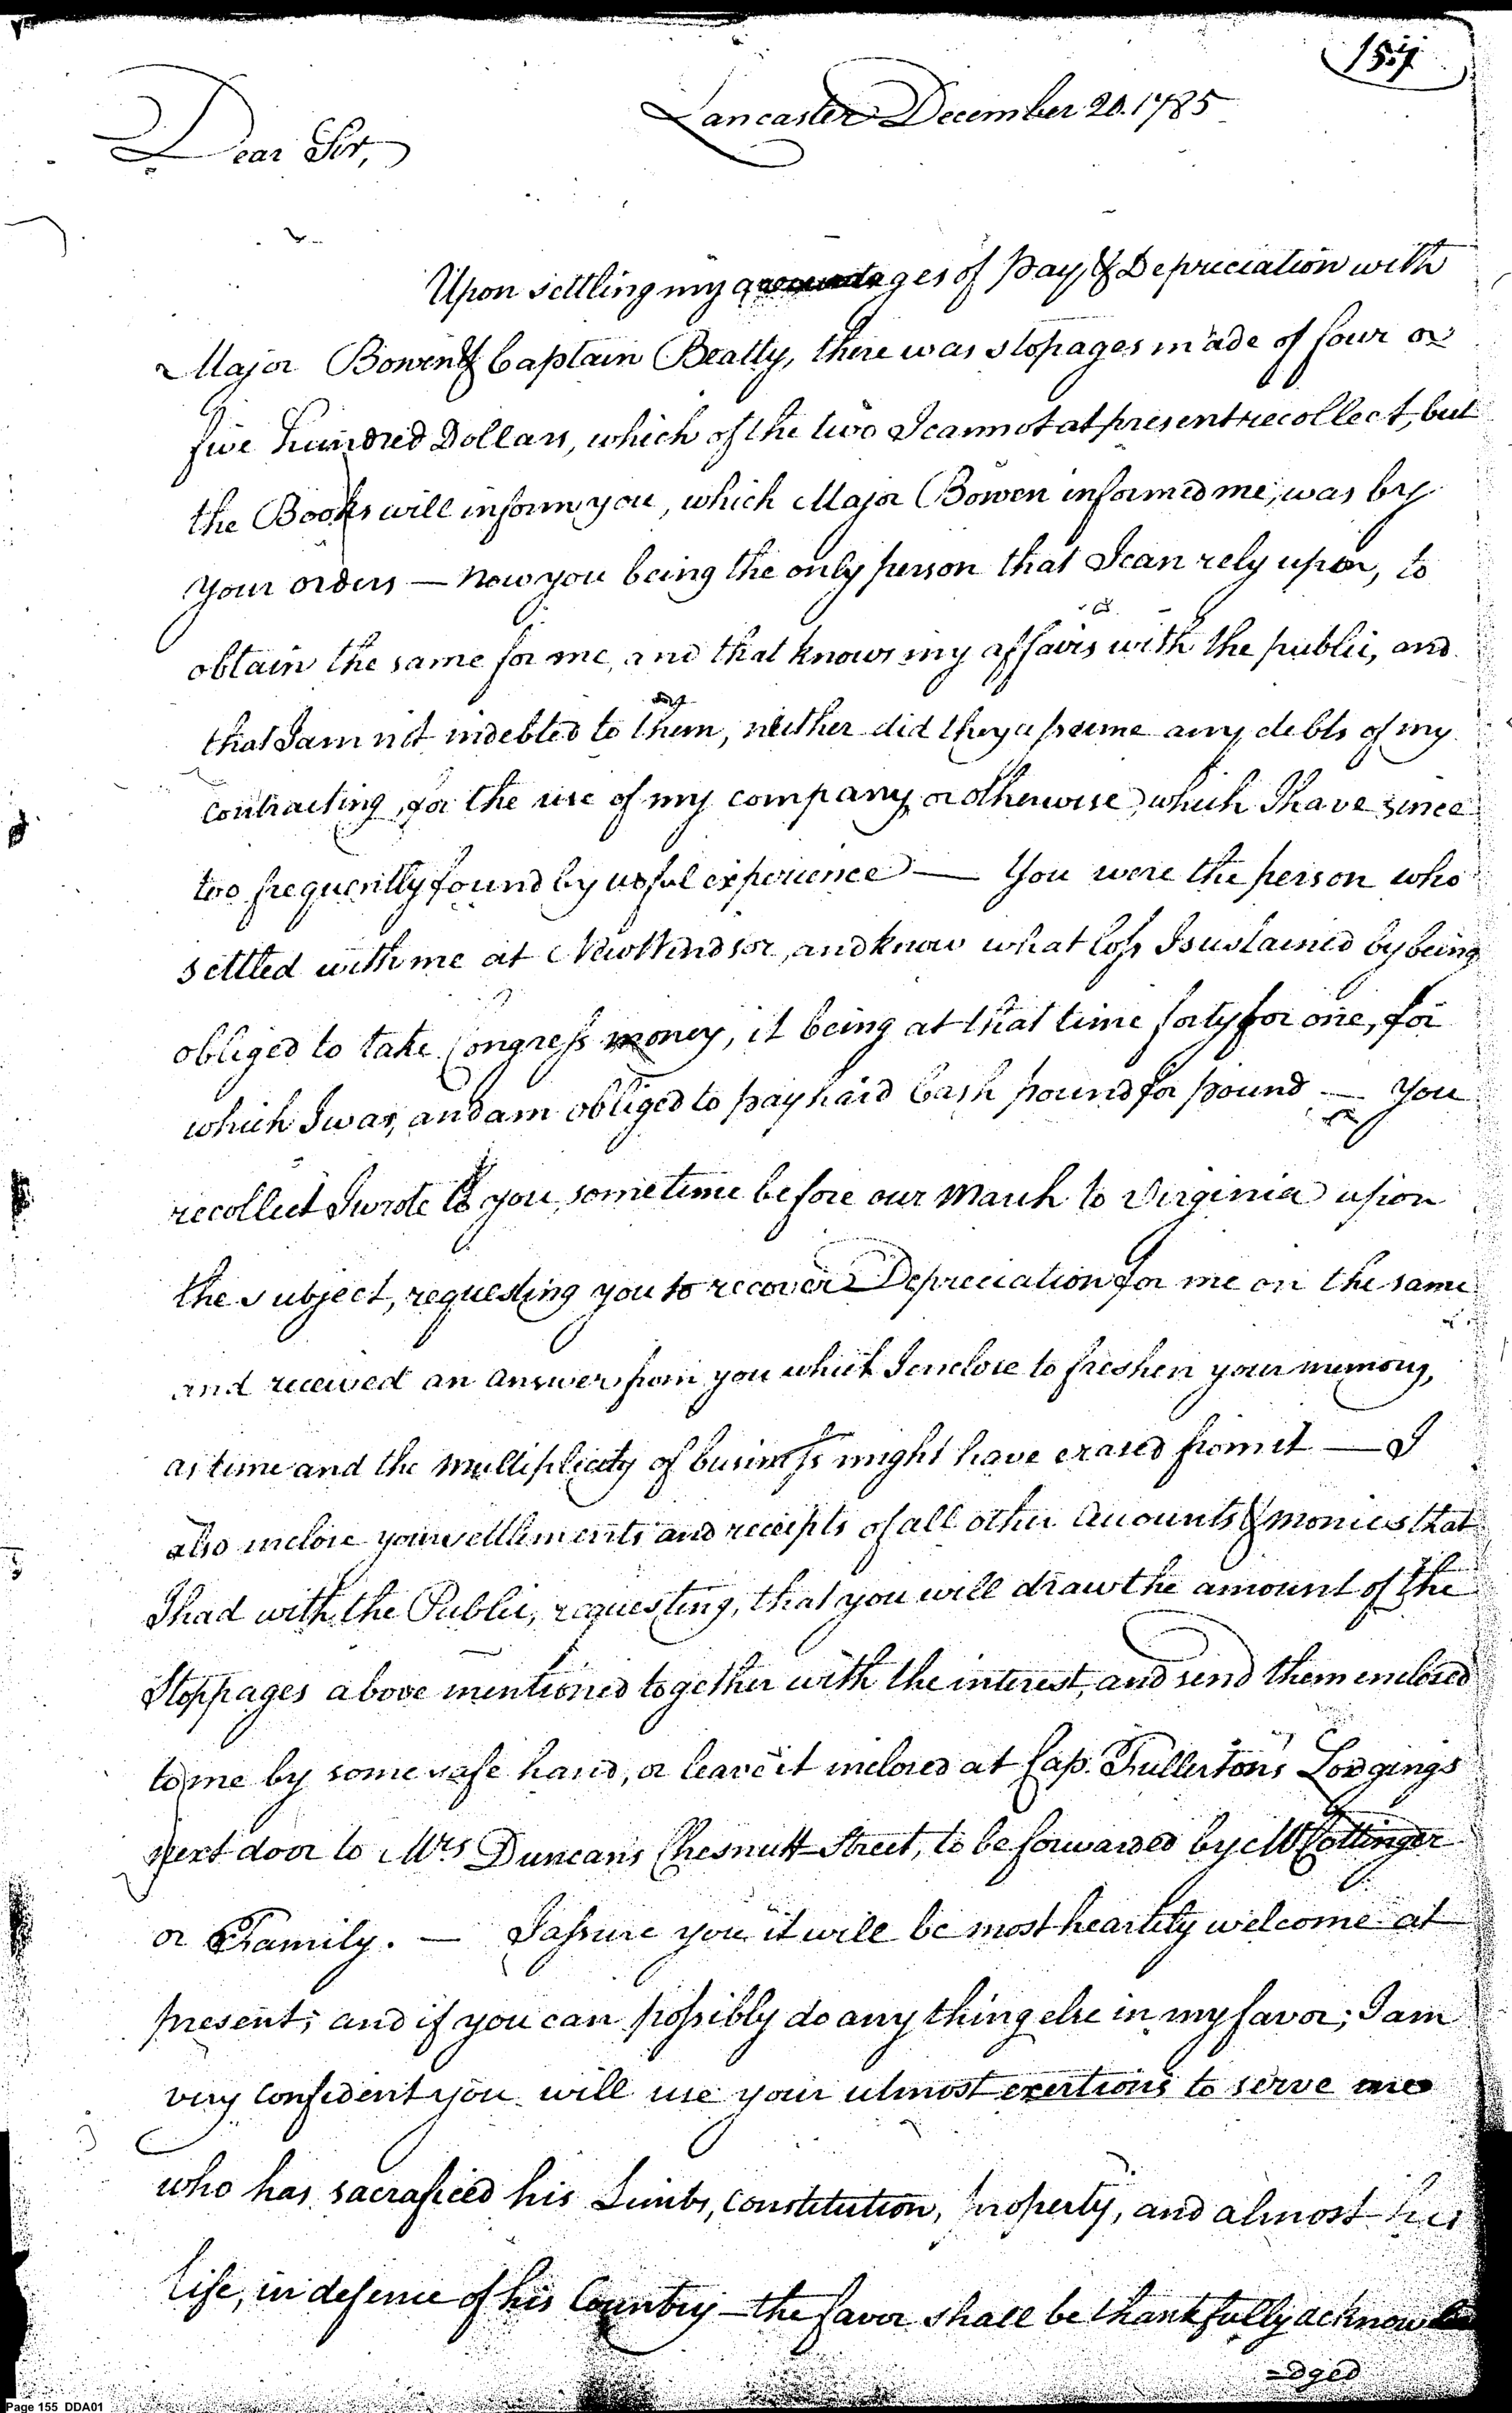 Lancaster December 20. 1785
Dear Sir,
Upon settling my ages of Pay, & Depreciation with
Major Bowen & Captain Beatty, there was stopages made of four or
five hundred Dollars, which of the two I cannot at present recollect, but
the Books will inform you, which Major Bowen informed me, was by
your orders — Now you being the only person that I can rely upon, to
obtain the same for me, and that knows my affairs with the public, and
that I am not indebted to them, neither did they assume any debts of my
contracting, for the use of my company, or otherwise, which I have since
too frequently found by woful experience — You were the person who
settled with me at New Windsor, and know what loss I sustained by being
obliged to take Congress money, it being at that time forty for one, for
which I was, and am obliged to pay hard Cash pound for pound — You
recollect I wrote to you, sometime before our March to Virginia upon
the subject, requesting you to recover Depreciation for me on the same
and received an answer from you which I enclose to freshen your memory,
as time and the multiplicity of business might have erased from it — I
also inclose your settlements and receipts of all other Accounts & monies that
I had with the Public, requesting, that you will draw the amount of the
Stoppages above mentioned together with the interest, and send them enclosed
to me by some safe hand, or leave it inclosed at Cap. Fullerton's Lodgings
next door to Mrs Duncans Chesnutt Street, to be forwarded by Mr Cottinger
or Family. — I assure you it will be most heartily welcome at
present; and if you can possibly do any thing else in my favor; I am
very confident you will use your utmost exertions to serve
who has sacraficed his Limbs, Constitution, property, and almost his
life, in defence of his Country — the favor shall be thankfully acknowle
=dged
Page 155 DDA01